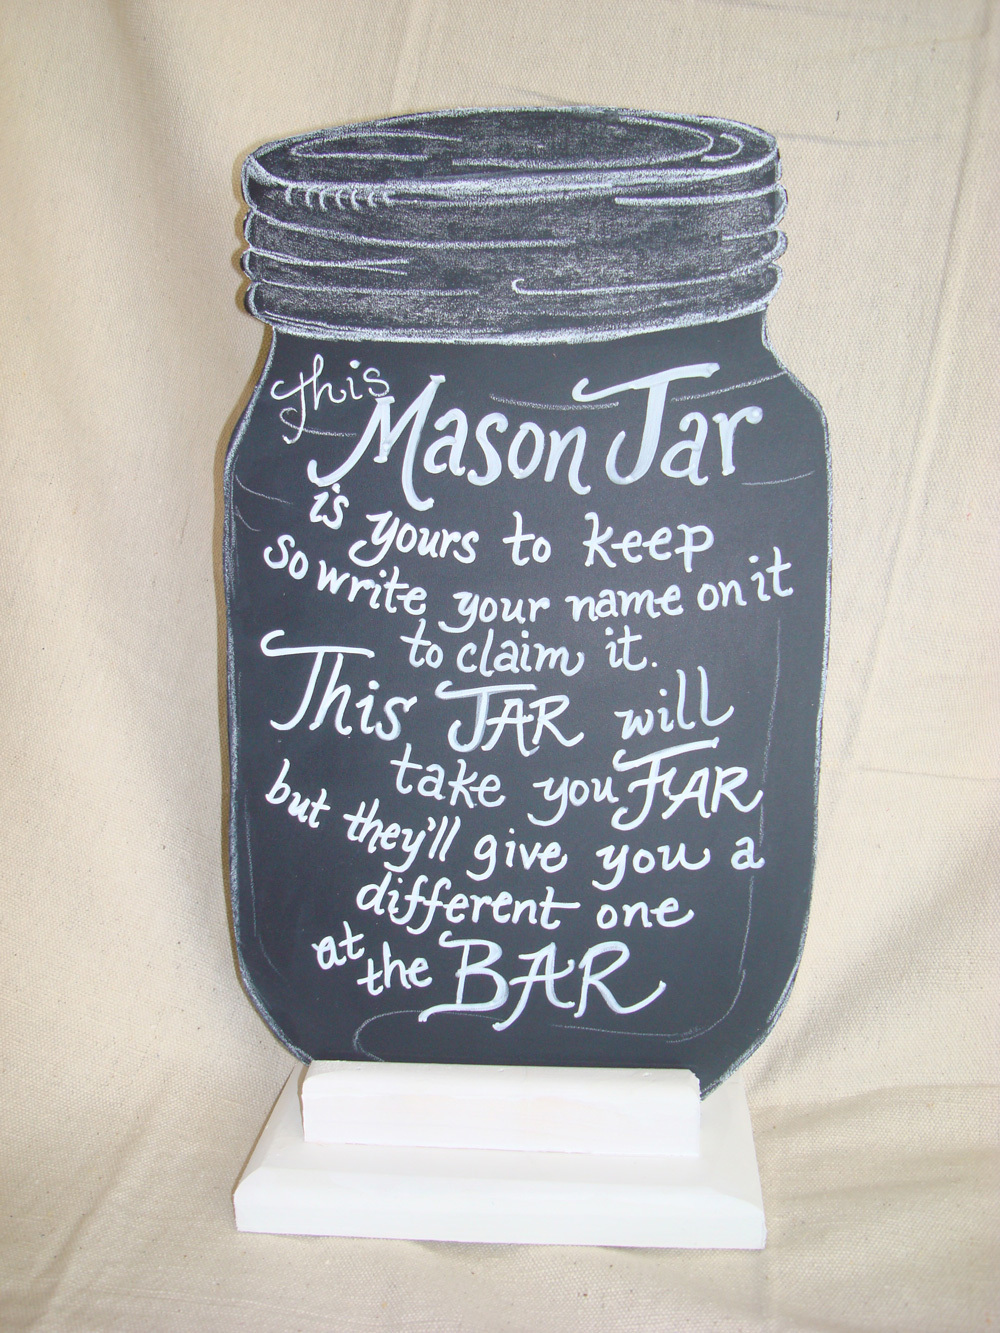 this Mason Jar
is yours to keep
so write your name on it
to claim it.
This JAR will
take you FAR
but they'll give you a
different one
at the BAR